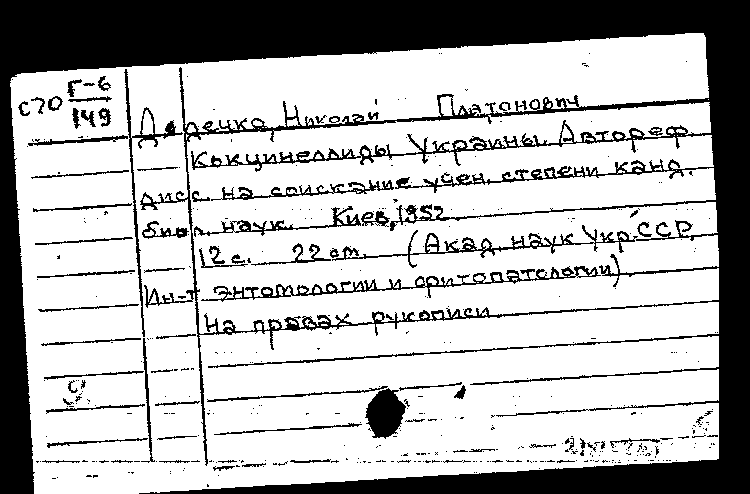 С70 Г-6
149
Дядечко, Николай Платонович
Кокцинеллиды Украины. Автореф.
дисс. на соискание учен. степени канд.
биол. наук. Киев, 1952.
12 с. 22 см. (Акад. наук Укр. ССР.
Ин-т энтомологии и фитопатологии).
На правах рукописи.
9